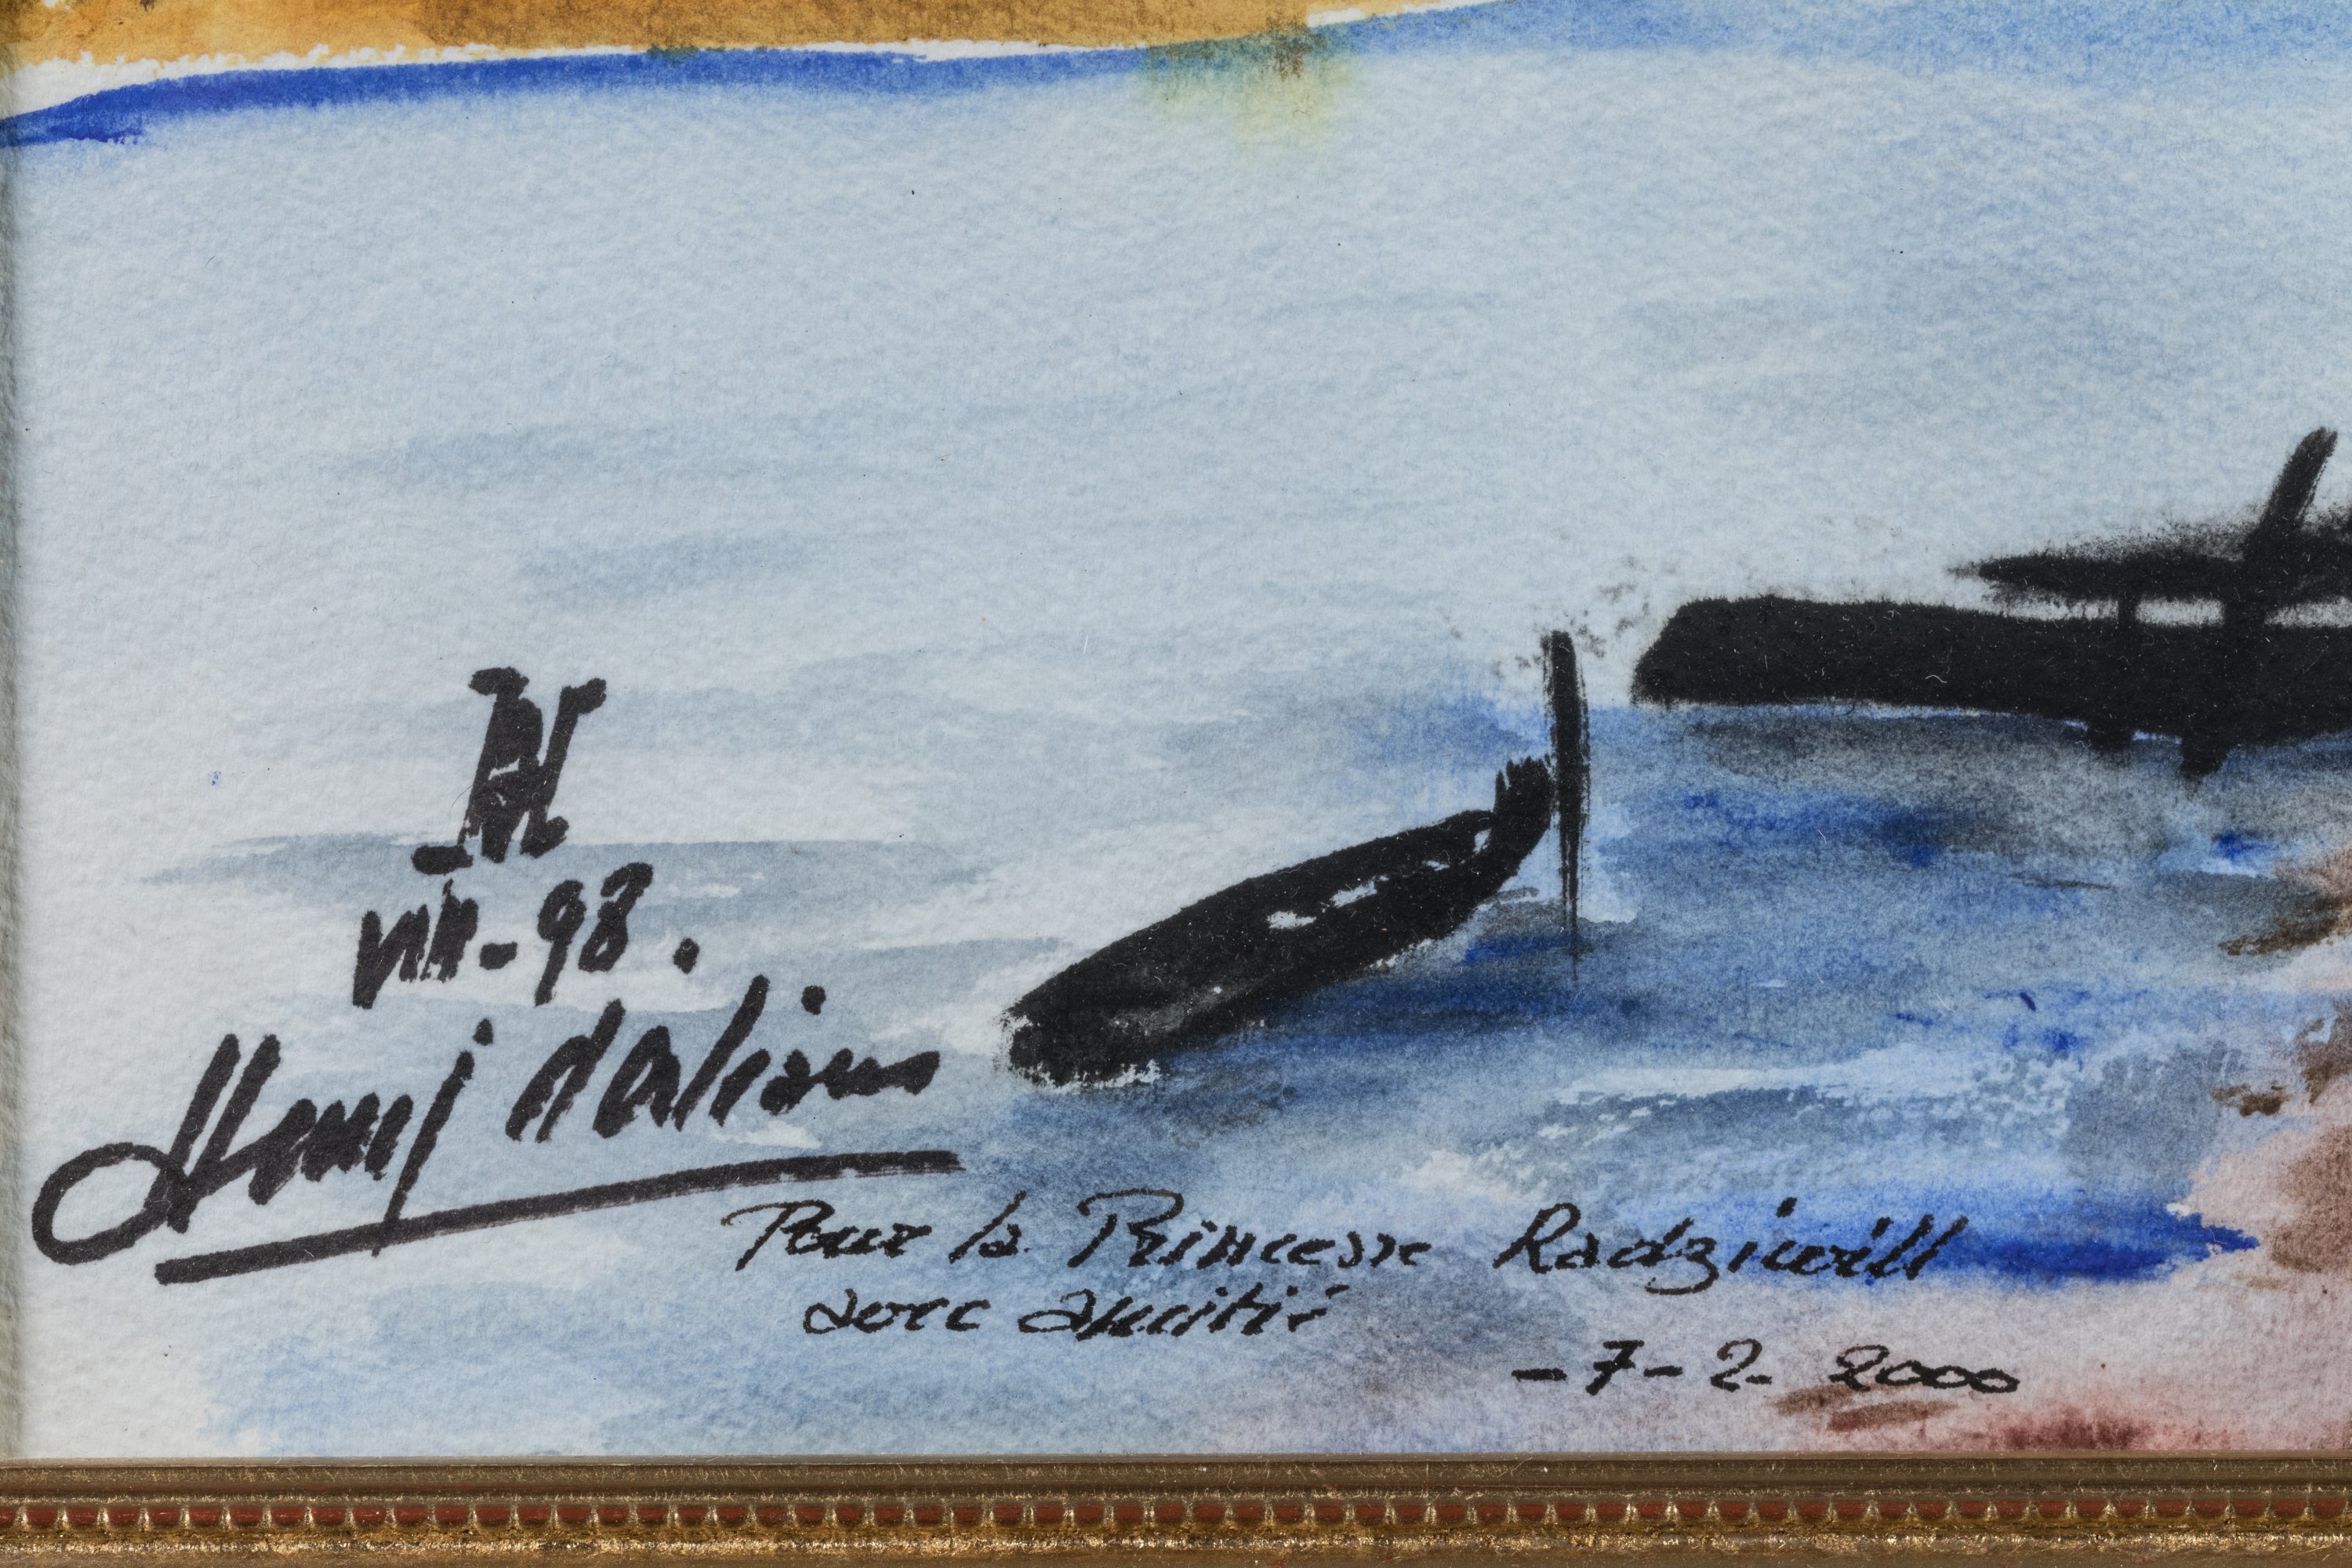 VIII-98.
Henri d'Anhiaux
Pour la Princesse Radziwill
avec amitié
-7-2- 2000